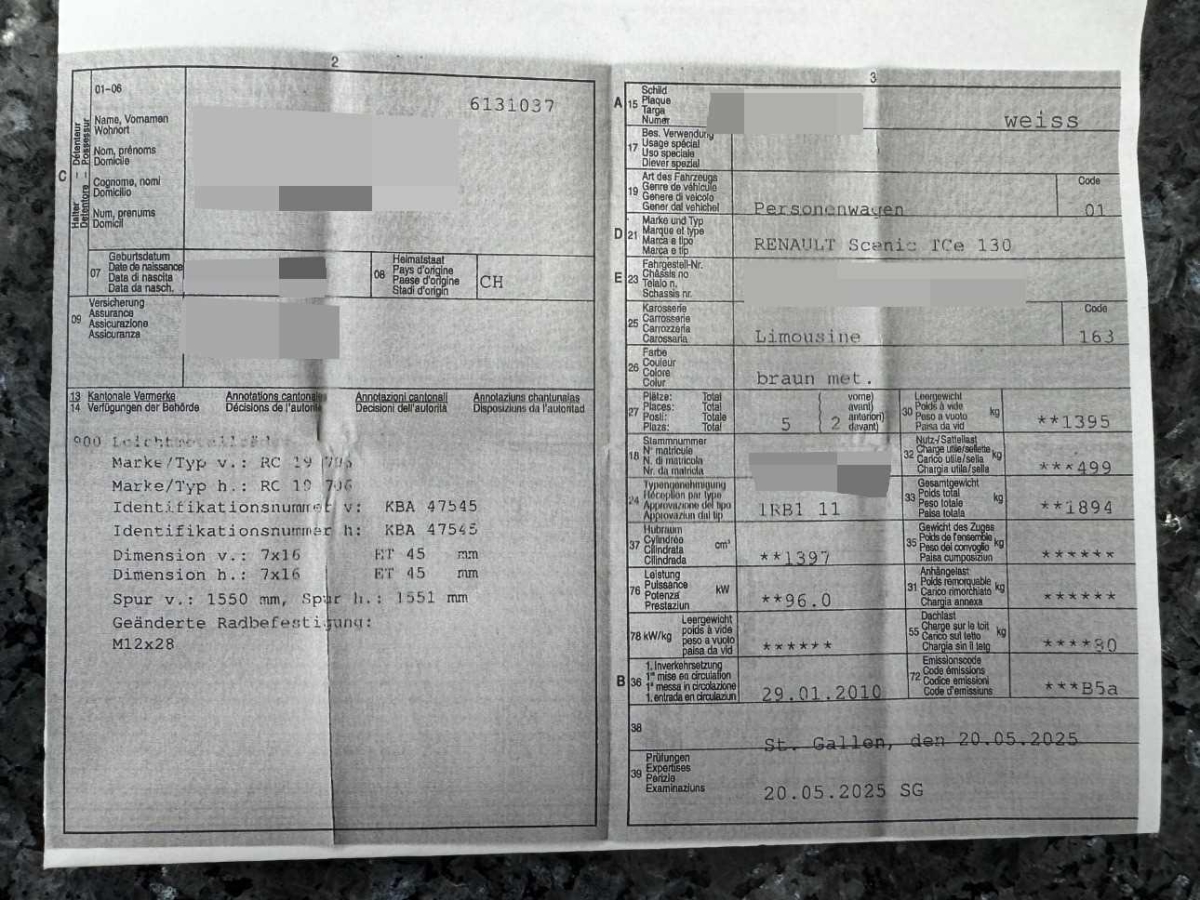 2
01-06
6131037
Halter – Détenteur
Detentore – Possessur
C
Name, Vornamen
Wohnort
Nom, prénoms
Domicile
Cognome, nomi
Domicilio
Num, prenums
Domicil
07
Geburtsdatum
Date de naissance
Data di nascita
Data da nasch.
08
Heimatstaat
Pays d'origine
Paese d'origine
Stadi d'origin
CH
09
Versicherung
Assurance
Assicurazione
Assicuranza
13 Kantonale Vermerke Annotations cantonales Annotazioni cantonali Annotaziuns chantunalas
14 Verfügungen der Behörde Décisions de l'autorité Decisioni dell'autorità Disposiziuns da l'autoritad
900 Leichtmetallräder
Marke/Typ v.: RC 19 706
Marke/Typ h.: RC 19 706
Identifikationsnummer v: KBA 47545
Identifikationsnummer h: KBA 47545
Dimension v.: 7x16 ET 45 mm
Dimension h.: 7x16 ET 45 mm
Spur v.: 1550 mm, Spur h.: 1551 mm
Geänderte Radbefestigung:
M12x28
3
A 15
Schild
Plaque
Targa
Numer
weiss
17
Bes. Verwendung
Usage spécial
Uso speciale
Diever spezial
19
Art des Fahrzeugs
Genre de véhicule
Genere di veicolo
Gener dal vehichel
Personenwagen
Code
01
D 21
Marke und Typ
Marque et type
Marca e tipo
Marca e tip
RENAULT Scenic TCe 130
E 23
Fahrgestell-Nr.
Châssis no
Telaio n.
Schassis nr.
25
Karosserie
Carrosserie
Carrozzeria
Carossaria
Limousine
Code
163
26
Farbe
Couleur
Colore
Colur
braun met.
27
Plätze: Total
Places: Total
Posti: Totale
Plazs: Total
5
2
vorne)
avant)
anteriori)
davant)
30
Leergewicht
Poids à vide
Peso a vuoto
Paisa da vid
kg
**1395
18
Stammnummer
N° matricule
N. di matricola
Nr. da matricla
32
Nutz-/Sattellast
Charge utile/sellette
Carico utile/sella
Chargia utile/sella
kg
***499
24
Typengenehmigung
Réception par type
Approvazione del tipo
Approvaziun dal tip
1RB1 11
33
Gesamtgewicht
Poids total
Peso totale
Paisa totala
kg
**1894
37
Hubraum
Cylindrée
Cilindrata
Cilindrada
cm³
**1397
35
Gewicht des Zuges
Poids de l'ensemble
Peso del convoglio
Paisa cumposiziun
kg
******
76
Leistung
Puissance
Potenza
Prestaziun
kW
**96.0
31
Anhängelast
Poids remorquable
Carico rimorchiato
Chargia annexa
kg
******
78 kW/kg
Leergewicht
poids à vide
peso a vuoto
paisa da vid
******
55
Dachlast
Charge sur le toit
Carico sul tetto
Chargia sin il tetg
kg
****80
B 36
1. Inverkehrsetzung
1re mise en circulation
1a messa in circolazione
1. entrada en circulaziun
29.01.2010
72
Emissionscode
Code émissions
Codice emissioni
Code d'emissiuns
***B5a
38
St. Gallen, den 20.05.2025
39
Prüfungen
Expertises
Perizie
Examinaziuns
20.05.2025 SG